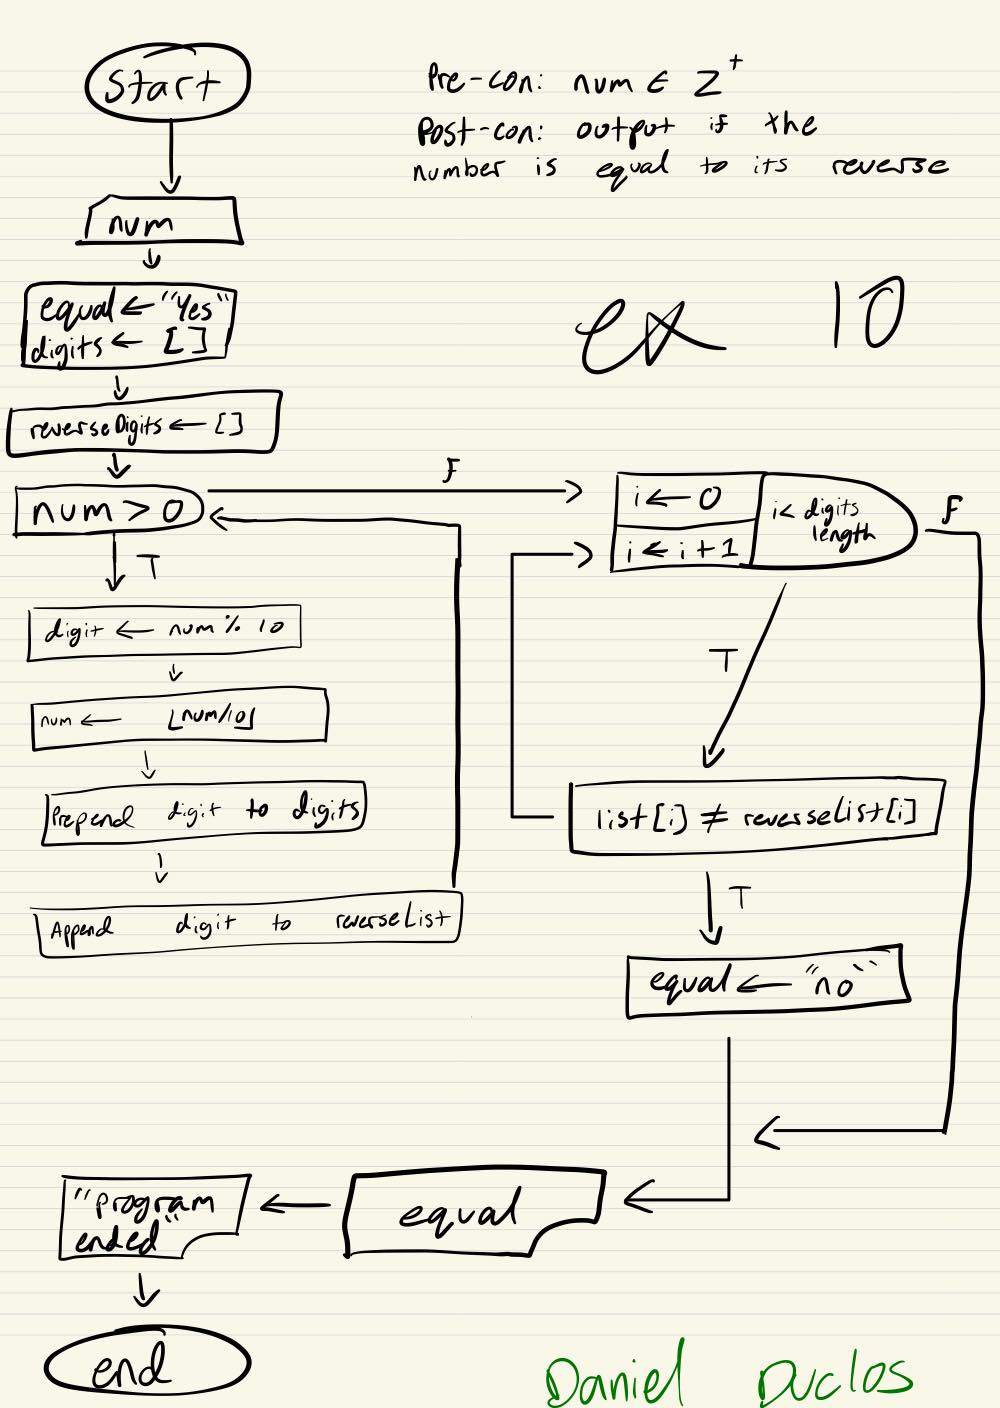 Start
Pre-con: num ∈ Z⁺
Post-con: output if the
number is equal to its reverse
num
equal ← "Yes"
digits ← []
ex 10
reverseDigits ← []
num > 0
F
T
digit ← num % 10
num ← ⌊num/10⌋
Prepend digit to digits
Append digit to reverseList
i ← 0
i ← i + 1
i < digits
length
F
T
list[i] ≠ reverseList[i]
T
equal ← "no"
equal
"program
ended"
end
Daniel Duclos